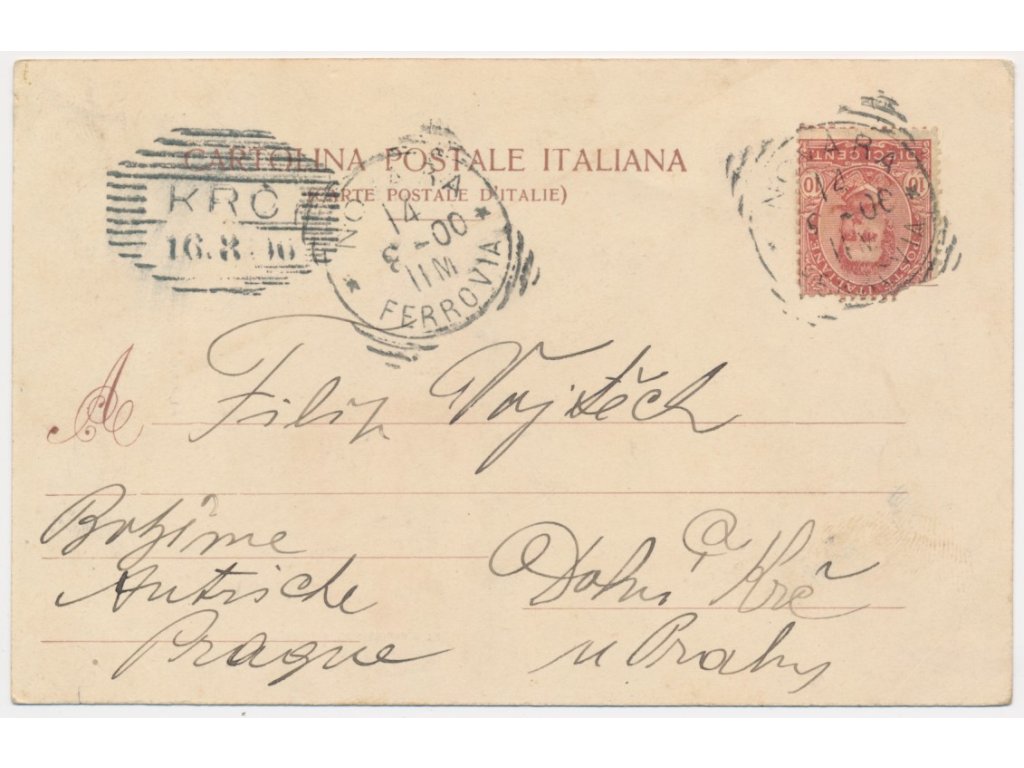 CARTOLINA POSTALE ITALIANA
(CARTE POSTALE D'ITALIE)
KRČ
16.8.00
NOVARA
14
8-00
11M
FERROVIA
NOVARA
14
8-00
11M
FERROVIA
POSTE ITALIANE
10 10
A
Filip Vojtěch
Bohême
Autriche
Prague
Dolní Krč
u Prahy